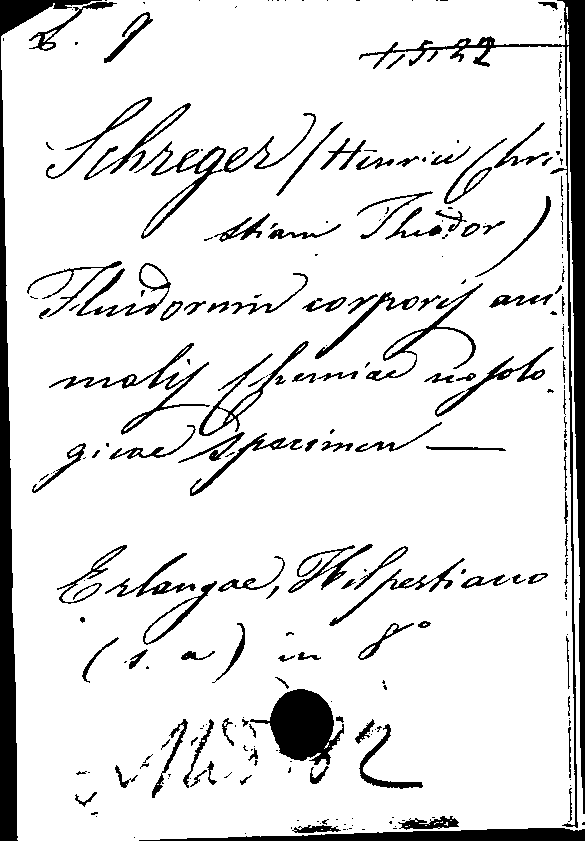 1,5,22
Schreger (Henrici Chri-
stiani Theodor)
Fluidorum corporis ani-
malis chemiae nosolo-
gicae specimen —
Erlangae, Hilpertiano
(s. a) in 8°
82